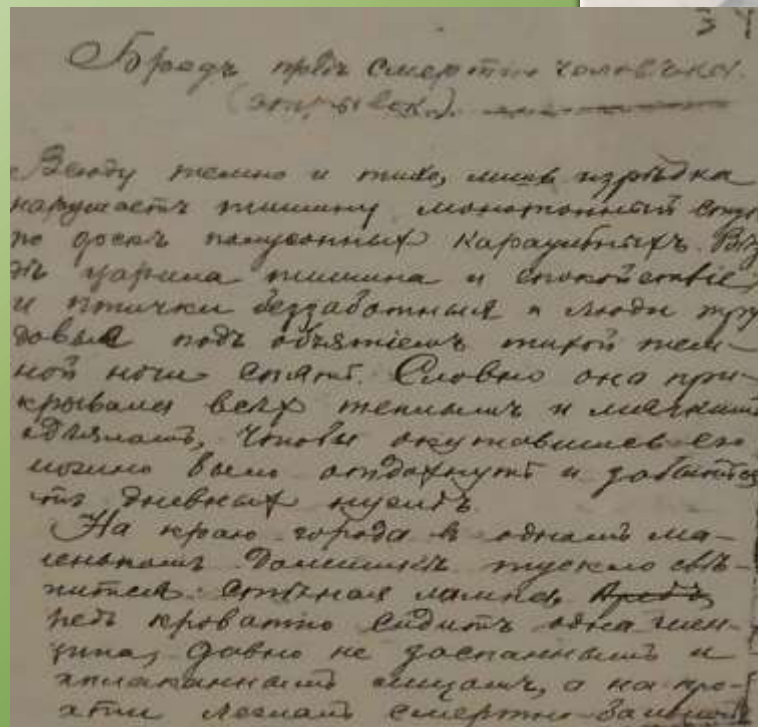 34
Бредъ предъ смертью человѣка.
(отрывокъ).
Всюду темно и тихо, лишь изрѣдка
нарушаетъ тишину монотонный стук
по доскѣ полусонныхъ караульныхъ. Вез
дѣ царила тишина и спокойствіе,
и птички беззаботныя и люди тру
довые подъ объятіемъ тихой тем-
ной ночи спятъ. Словно она при-
крывала всѣх теплымъ и мягкимъ
одѣяломъ, чтобы окутавшись его
можно было отдохнуть и забыться
отъ дневныхъ нуждъ.
На краю города в одномъ ма-
ленькомъ домишкѣ тускло свѣ-
тится стѣнная лампа.
редъ кроватью сидитъ одна жен-
щина, давно не доспаннымъ и
заплаканнымъ лицомъ, а на кро-
вати лежалъ смертно